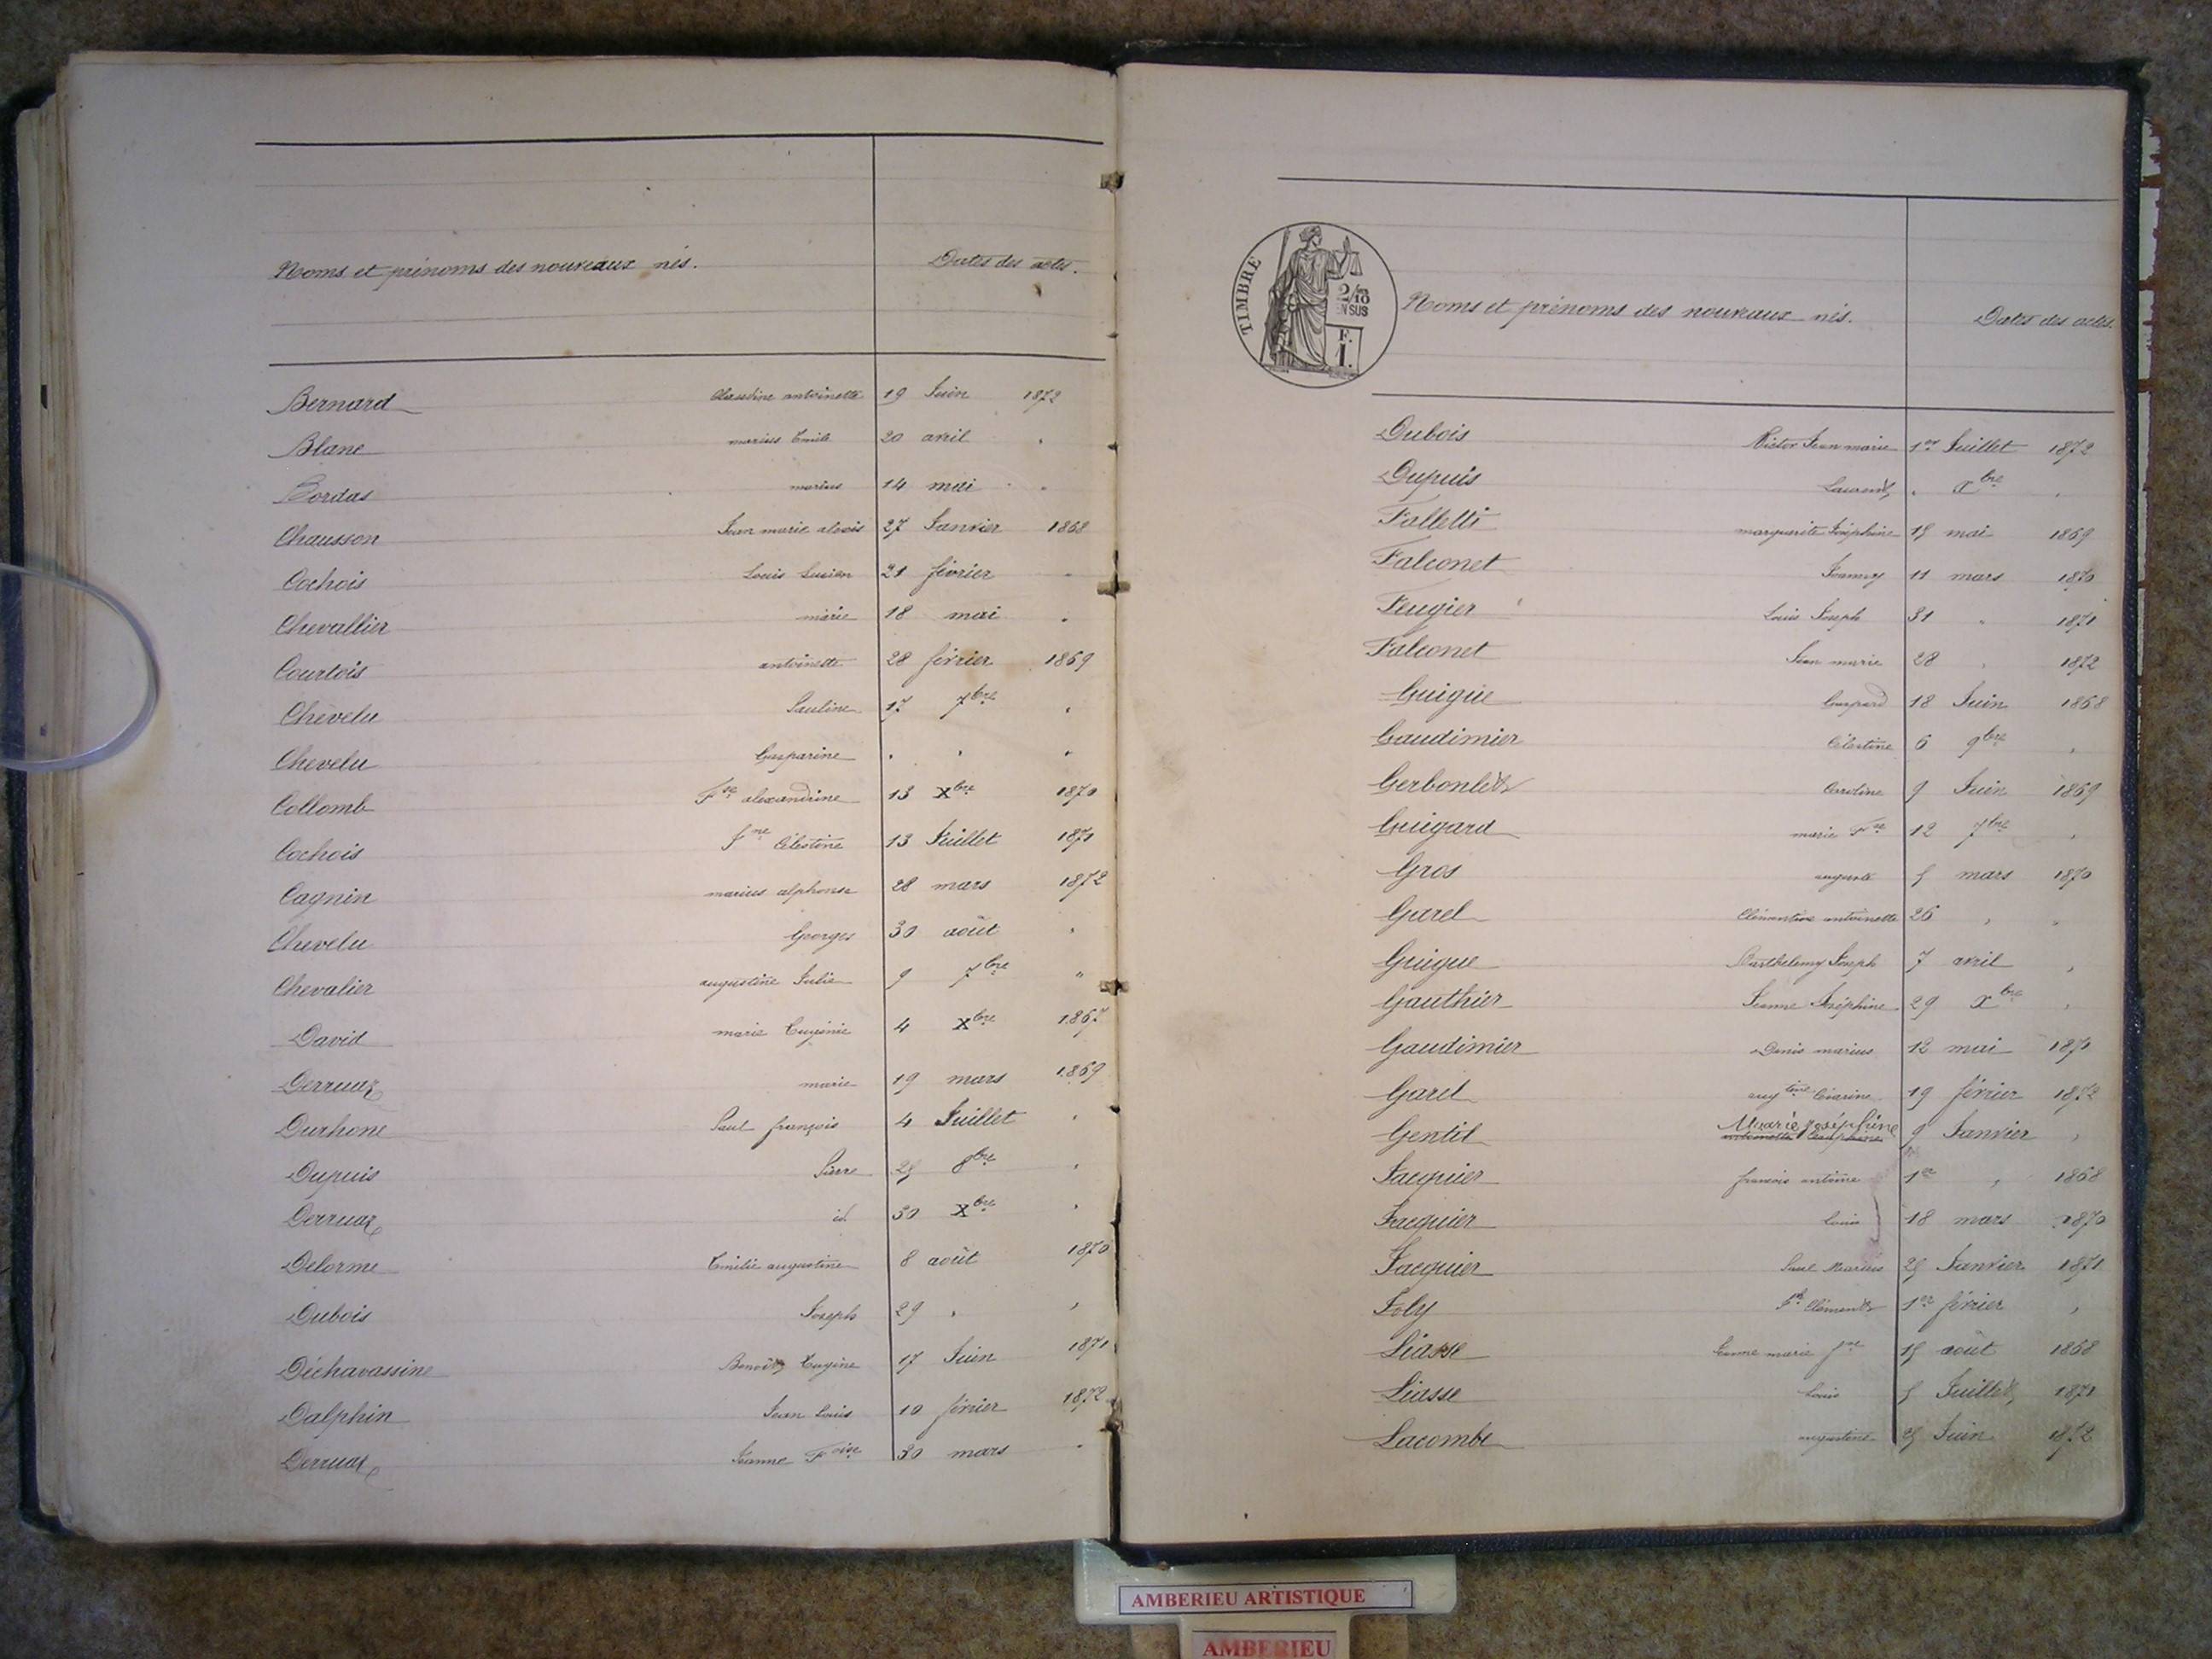 Noms et prénoms des nouveaux nés. Dates des actes.
Bernard Claudine antoinette 19 Juin 1872
Blanc marius Emile 20 avril "
Bordas marius 14 mai "
Chausson Jean marie alexis 27 Janvier 1868
Cochois Louis Lucien 21 février "
Chevallier marie 18 mai "
Courtois antoinette 28 février 1869
Chevelu Pauline 17 7bre "
Chevelu Gasparine " " "
Collomb Fse alexandrine 13 Xbre 1870
Cochois fne Célestine 13 Juillet 1871
Cagnin marius alphonse 28 mars 1872
Chevelu Georges 30 août "
Chevalier augustine Julie 9 7bre "
David marie Eugénie 4 Xbre 1867
Derruaz marie 19 mars 1869
Durhone Paul françois 4 Juillet "
Dupuis Pierre 25 8bre "
Derruaz id 30 Xbre "
Delorme Emilie augustine 8 août 1870
Dubois Joseph 29 " "
Déchavassine Benoît Eugène 17 Juin 1871
Dalphin Jean Louis 10 février 1872
Derruaz Jeanne Foise 30 mars "
TIMBRE
2/10
EN SUS
F.
1.
Noms et prénoms des nouveaux nés. Dates des actes.
Dubois Victor Jean marie 1er Juillet 1872
Dupuis Laurent " Xbre "
Falletti marguerite Joséphine 15 mai 1869
Falconet Joanny 11 mars 1870
Feugier Louis Joseph 31 " 1871
Falconet Jean marie 28 " 1872
Guigue Gaspard 18 Juin 1868
Gaudimier Célestine 6 9bre "
Gerboulet Caroline 9 Juin 1869
Guigard marie Fse 12 7bre "
Gros auguste 5 mars 1870
Garel Clémentine antoinette 26 " "
Guigue Barthélemy Joseph 7 avril "
Gauthier Jeanne Joséphine 29 Xbre "
Gaudimier Denis marius 12 mai 1871
Garel 19 février 1872
Gentil Marie Joséphine 9 Janvier "
Jacquier françois antoine 1er " 1868
Jacquier Louis 18 mars 1870
Jacquier Paul Marius 25 Janvier 1871
Joly Clément 1er février "
Liasse Jeanne marie fse 15 août 1868
Liasse Louis 5 Juillet 1871
Lacombe augustine 25 Juin 1872
AMBERIEU ARTISTIQUE
AMBERIEU